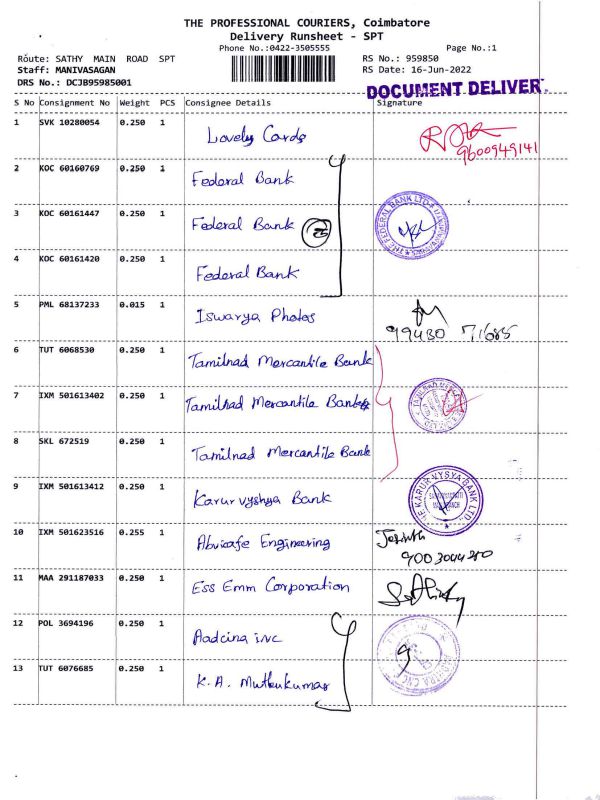 THE PROFESSIONAL COURIERS, Coimbatore
Delivery Runsheet - SPT
Phone No.:0422-3505555
Page No.:1
Route: SATHY MAIN ROAD SPT
RS No.: 959850
Staff: MANIVASAGAN
RS Date: 16-Jun-2022
DRS No.: DCJB95985001
DOCUMENT DELIVER
S No Consignment No Weight PCS Consignee Details Signature
1 SVK 10280054 0.250 1 Lovely Cards
9600949141
2 KOC 60160769 0.250 1 Federal Bank
3 KOC 60161447 0.250 1 Federal Bank
THE FEDERAL BANK LTD
4 KOC 60161420 0.250 1 Federal Bank
5 PML 68137233 0.015 1 Iswarya Photos
6 TUT 6068530 0.250 1 Tamilnad Mercantile Bank
7 IXM 501613402 0.250 1 Tamilnad Mercantile Bank
8 SKL 672519 0.250 1 Tamilnad Mercantile Bank
9 IXM 501613412 0.250 1 Karur vyshya Bank
KARUR VYSYA BANK LTD.
10 IXM 501623516 0.255 1 Abvicafe Engineering
11 MAA 291187033 0.250 1 Ess Emm Corporation
12 POL 3694196 0.250 1 Aadcina inc
13 TUT 6076685 0.250 1 K.A. Muthukumar